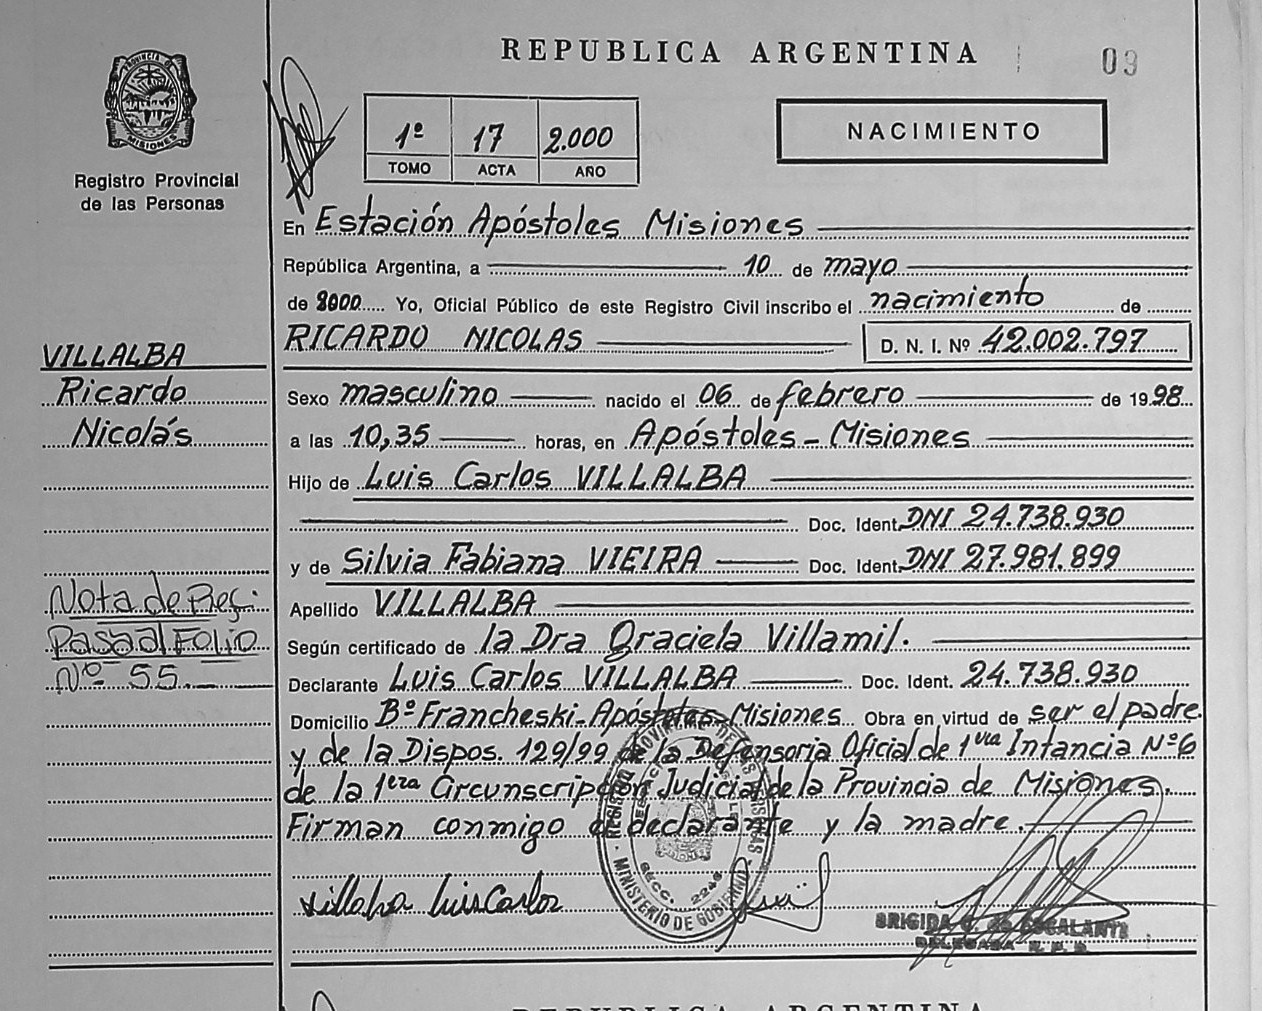 REPUBLICA ARGENTINA
09
PROVINCIA DE MISIONES
Registro Provincial
de las Personas
1º 17 2.000
TOMO ACTA AÑO
NACIMIENTO
En Estación Apóstoles Misiones
República Argentina, a 10 de mayo
de 2000 Yo, Oficial Público de este Registro Civil inscribo el nacimiento de
RICARDO NICOLAS D. N. I. Nº 42.002.797
VILLALBA
Ricardo
Nicolás
Sexo masculino nacido el 06 de febrero de 1998
a las 10,35 horas, en Apóstoles - Misiones
Hijo de Luis Carlos VILLALBA
Doc. Ident. DNI 24.738.930
y de Silvia Fabiana VIEIRA Doc. Ident. DNI 27.981.899
Apellido VILLALBA
Nota de Ref.
Pasa al Folio
Nº 55.
Según certificado de la Dra Graciela Villamil.
Declarante Luis Carlos VILLALBA Doc. Ident. 24.738.930
Domicilio Bº Francheski-Apóstoles-Misiones Obra en virtud de ser el padre
y de la Dispos. 129/99 de la Defensoria Oficial de 1ra Intancia Nº6
de la 1era Circunscripción Judicial de la Provincia de Misiones.
Firman conmigo el declarante y la madre.
Villalba Luis Carlos
REGISTRO PROVINCIAL DE LAS PERSONAS
MINISTERIO DE GOBIERNO
SECC. 2246
BRIGIDA ESCALANTE
DELEGADA R. P. P.
REPUBLICA ARGENTINA